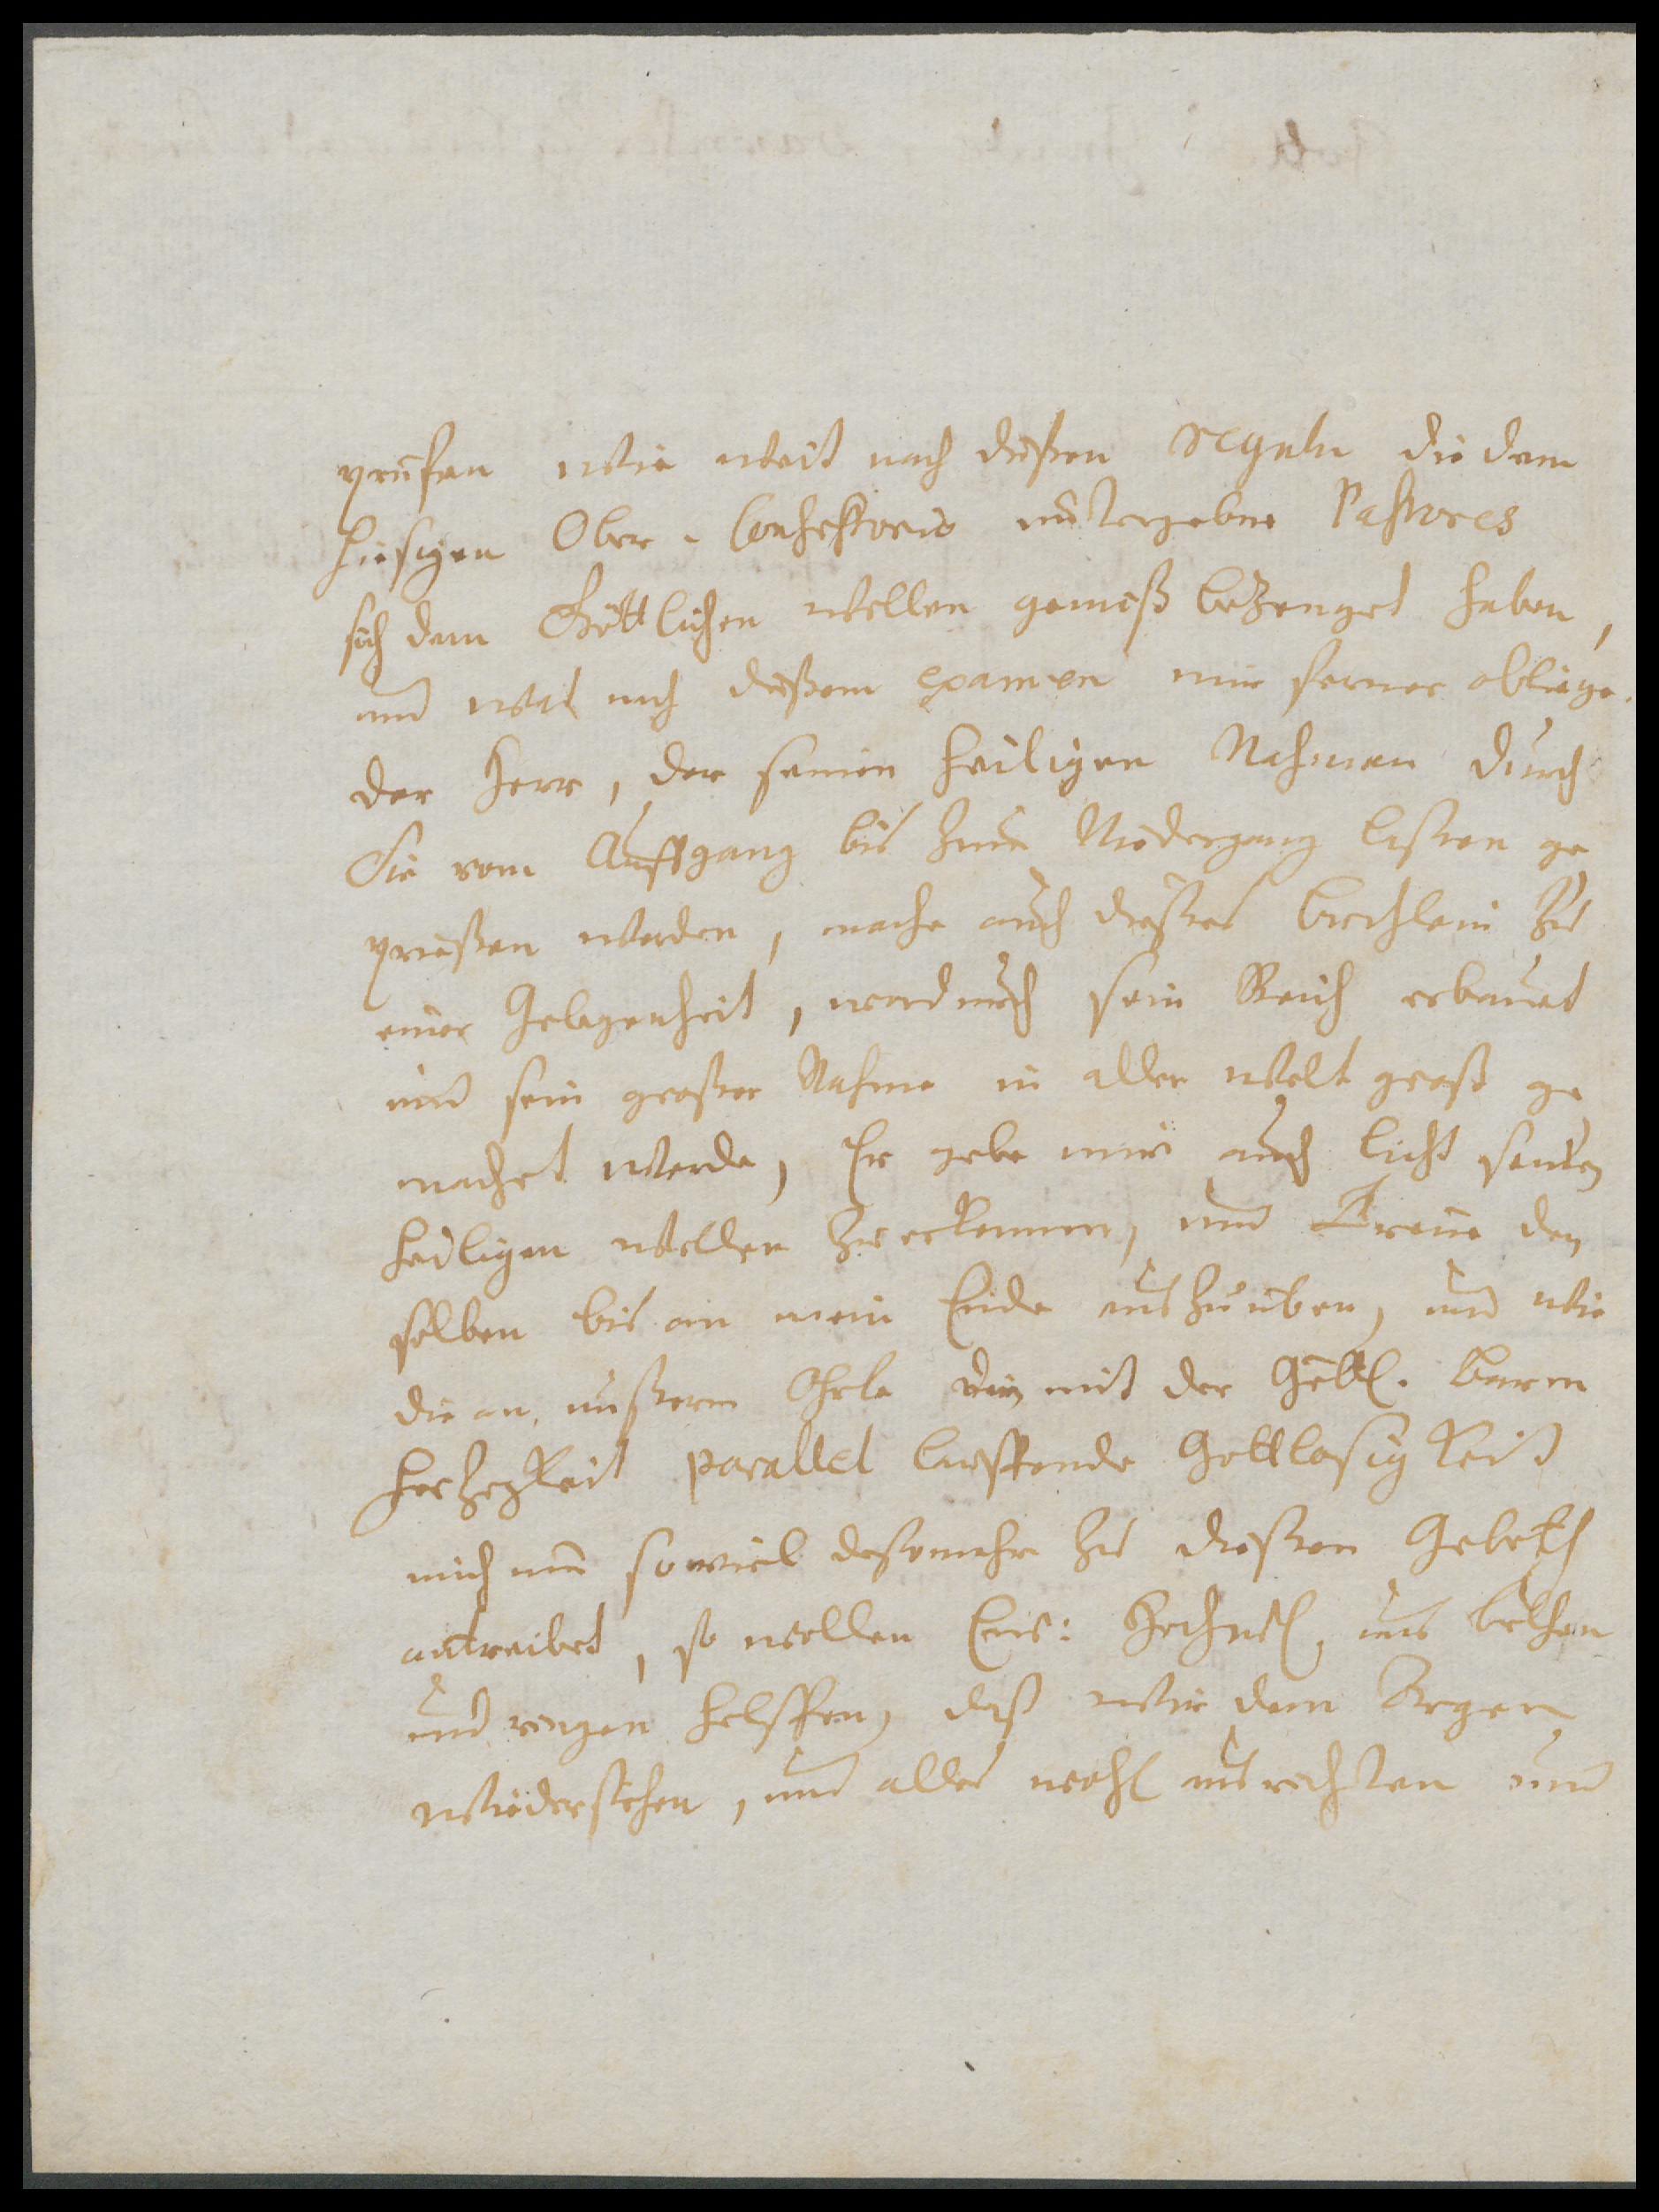 prüfen wie weit nach dießen regeln die dem
hiesigen Ober-Consistorio untergebne Pastores
sich dem Göttlichen willen gemäß bezeuget haben,
und was nach dießem examen mir ferner obliege.
der Herr, der seinen heiligen Nahmen durch
Sie vom Auffgang bis zum Niedergang laßen ge
prießen werden, mache auch dießes Büchlein zu
einer Gelegenheit, wordurch sein Reich erbauet
und sein großer Nahme in aller welt groß ge
machet werde, Er gebe mir auch licht seinen
heiligen willen zu erkennen, und Treue den
selben bis an mein Ende auszuüben, und wie
die an unßerm Ohrte mit der Göttl. Barm
hertzigkeit parallel lauffende Gottlosigkeit
mich nun soviel destomehr zu dießen Gebeth
antreibet, so wollen Eur: bethen
und ringen helffen, daß wir dem Argen
wiederstehen, und alles wohl ausrichten und